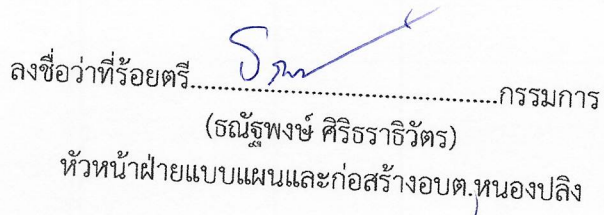 ลงชื่อว่าที่ร้อยตรี..................................................กรรมการ
(ธณัฐพงษ์ ศิริธราธิวัตร)
หัวหน้าฝ่ายแบบแผนและก่อสร้างอบต.หนองปลิง